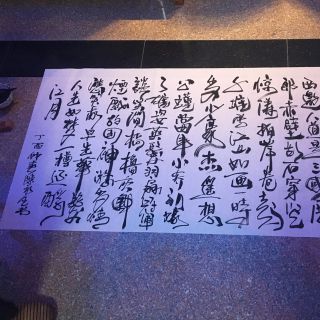 西邊人道是三國周
郎赤壁乱石穿空
惊涛拍岸卷起
千堆雪江山如画一时
多少豪杰遥想
公瑾当年小乔初嫁
了雄姿英发羽扇纶巾
談笑间樯橹灰飞
烟灭故国神游多情
应笑我早生华发
人生如梦一樽还酹
江月
丁酉仲夏